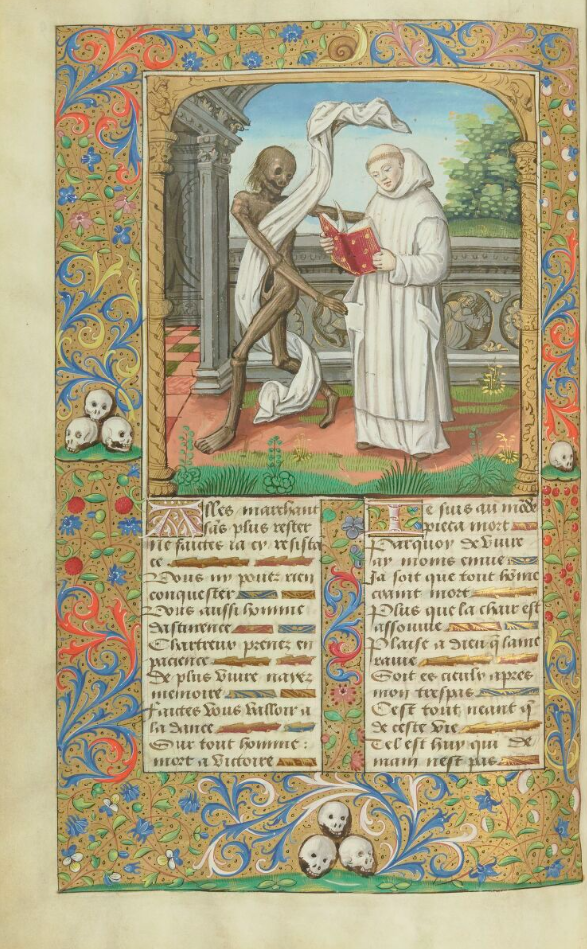 Alles marchant
sãs plus rester
Ne faictes ia cy resista
ce
Vous ny pouez rien
conquester
Vous aussi homme
dastinence
Chartreux prenez en
pacience
De plus viure nayez
memoire
Faictes vous valloir a
la dance
Sur tout homme:
mort a victoire
Ie suis au mõde
pieca mort
Parquoy de viure
ay moins enuie
Ja soit que tout hõme
craint mort
Plus que la chair est
assouuie
Plaise a dieu q̃ lame
rauie
Soit es cieulx apres
mon trespas
Cest tout neant q̃
de ceste vie
Tel est huy qui de
main nest pas